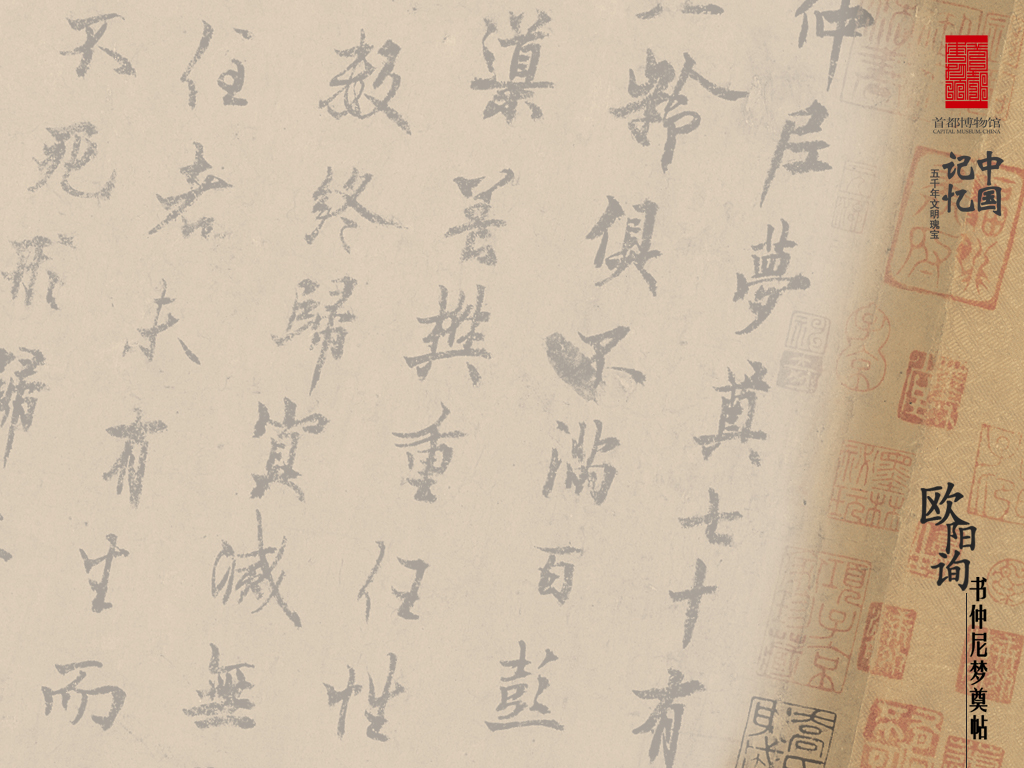 仲尼夢奠七十有
齡俱不滿百彭
養樊重任性
數終歸冥滅無
住者未有生而
不死形歸
首都博物馆
CAPITAL MUSEUM, CHINA
中国
记忆
五千年文明瑰宝
欧阳询
书仲尼梦奠帖